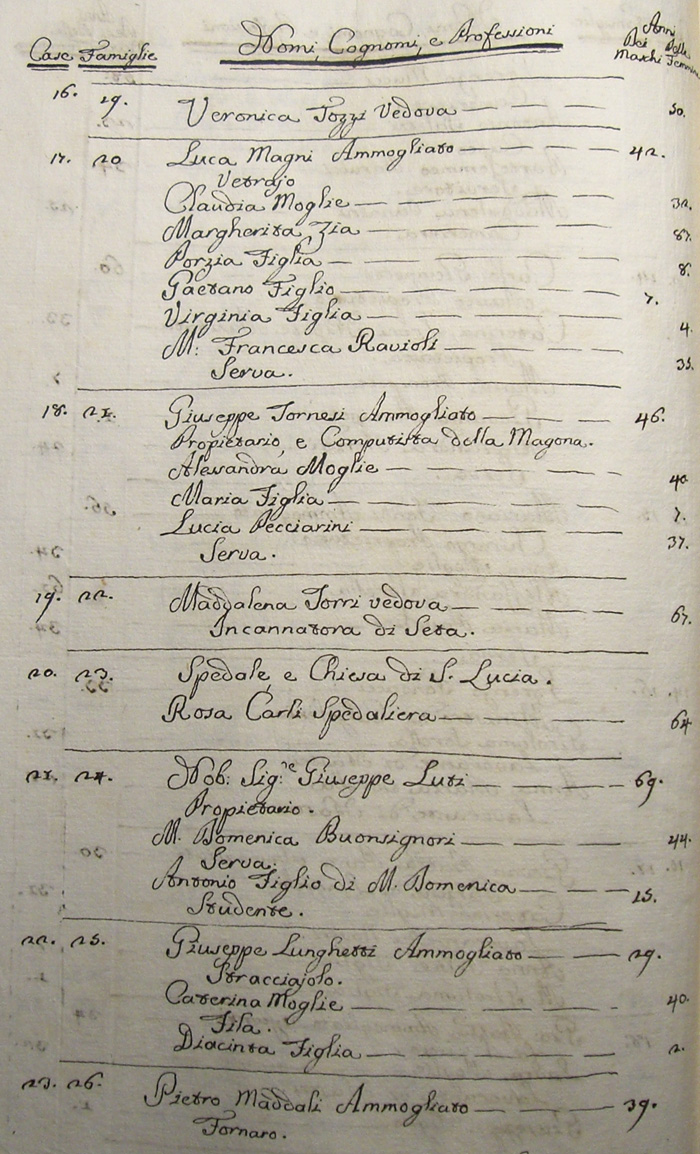 Case Famiglie Nomi, Cognomi, e Professioni Anni Dei Maschi Delle Femmine
16. 19. Veronica Tozzi Vedova 50.
17. 20 Luca Magni Ammogliato 42.
Vetrajo
Claudia Moglie 32.
Margherita Zia 87.
Porzia Figlia 8.
Gaetano Figlio 7.
Virginia Figlia 4.
M: Francesca Ravioli 33.
Serva.
18. 21. Giuseppe Tornesi Ammogliato 46.
Propietario, e Computista della Magona.
Alessandra Moglie 40.
Maria Figlia 7.
Lucia Pecciarini 37.
Serva.
19. 22. Maddalena Torri vedova 67.
Incannatora di Seta.
20. 23. Spedale, e Chiesa di S. Lucia.
Rosa Carli Spedaliera 64
21. 24. Nob: Sig.re Giuseppe Luti 69.
Propietario.
M. Domenica Buonsignori 44.
Serva.
Antonio Figlio di M. Domenica 15.
Studente.
22. 25. Giuseppe Lunghetti Ammogliato 29.
Stracciajolo.
Caterina Moglie 40.
Fila.
Diacinta Figlia 2.
23. 26. Pietro Maddali Ammogliato 39.
Fornaro.